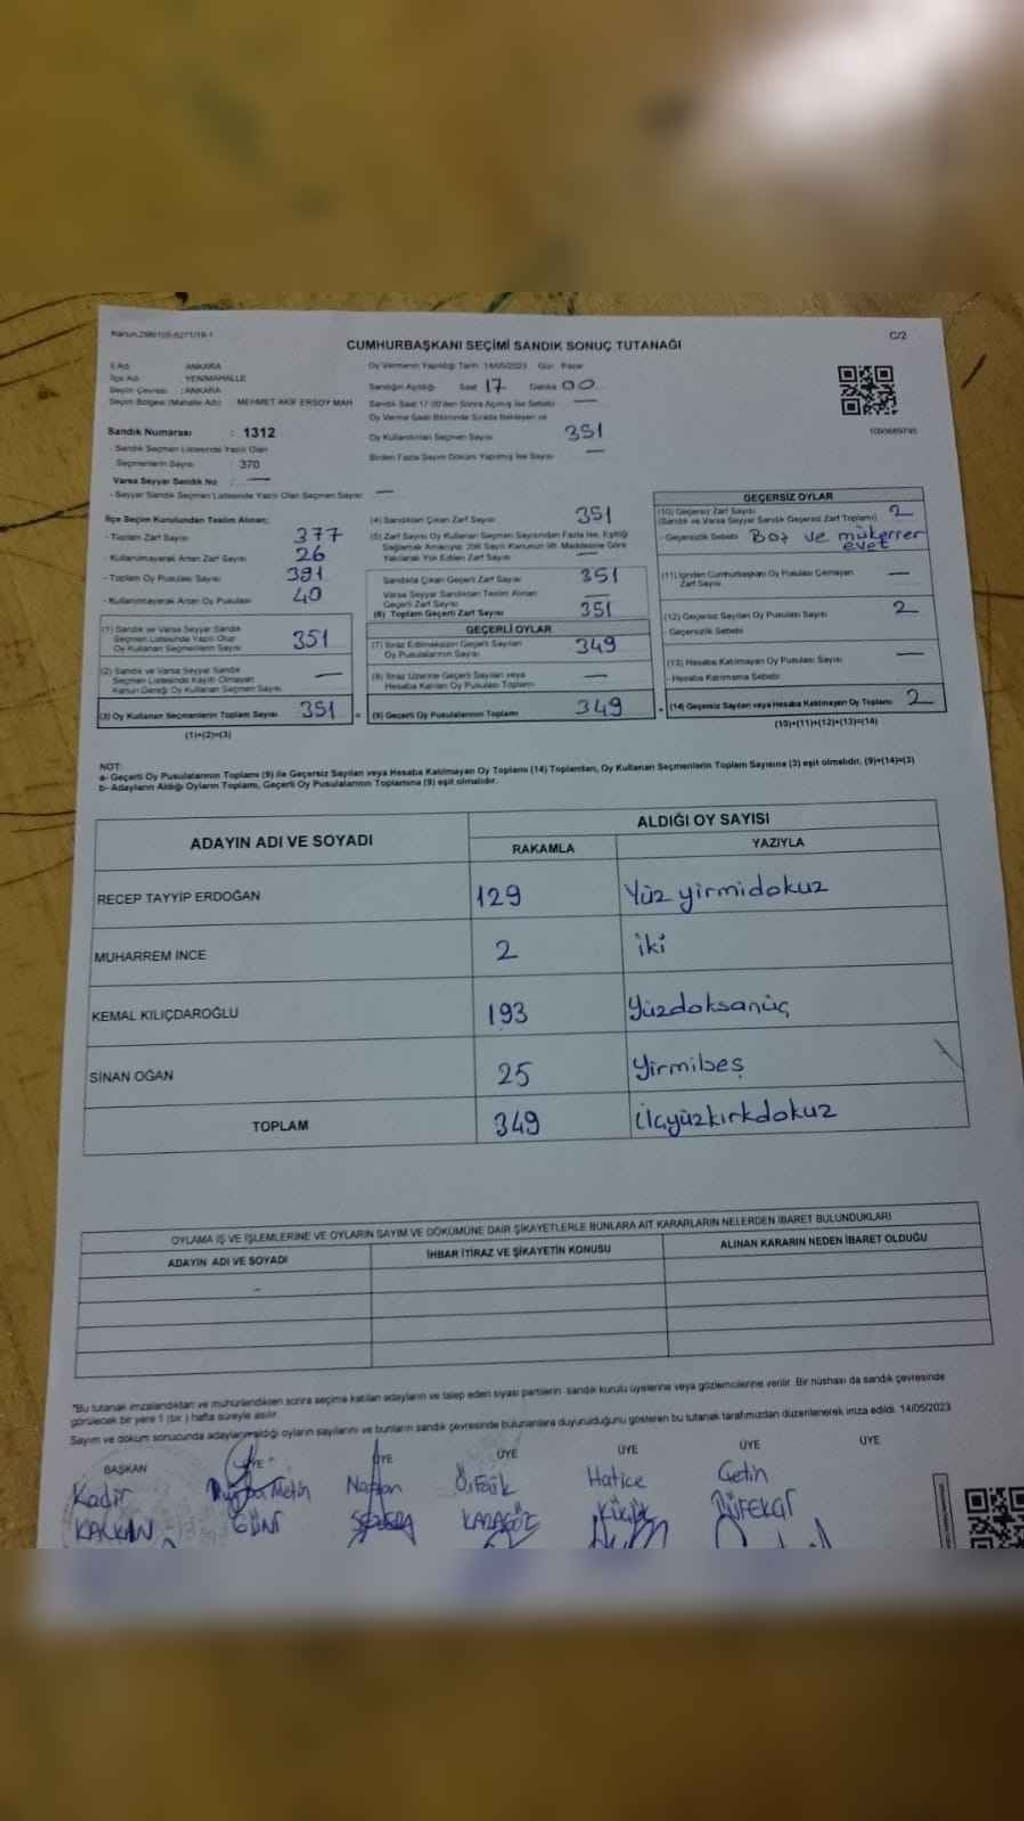 C/2
CUMHURBAŞKANI SEÇİMİ SANDIK SONUÇ TUTANAĞI
İl Adı : ANKARA
İlçe Adı : YENİMAHALLE
Seçim Çevresi : ANKARA
Seçim Bölgesi (Mahalle Adı) MEHMET AKİF ERSOY MAH
Sandık Numarası : 1312
- Sandık Seçmen Listesinde Yazılı Olan
Seçmenlerin Sayısı 370
Varsa Seyyar Sandık No : —
- Seyyar Sandık Seçmen Listesinde Yazılı Olan Seçmen Sayısı —
Oy Vermenin Yapıldığı Tarih 14/05/2023 Gün Pazar
Sandığın Açıldığı Saat 17 Dakika 00
Sandık Saat 17:00'den Sonra Açılmış İse Sebebi —
Oy Verme Saati Bitiminde Sırada Bekleyen ve
Oy Kullandırılan Seçmen Sayısı 351
Birden Fazla Sayım Döküm Yapılmış İse Sayısı —
1090669795
İlçe Seçim Kurulundan Teslim Alınan;
- Toplam Zarf Sayısı 377
- Kullanılmayarak Artan Zarf Sayısı 26
- Toplam Oy Pusulası Sayısı 391
- Kullanılmayarak Artan Oy Pusulası 40
(1) Sandık ve Varsa Seyyar Sandık
Seçmen Listesinde Yazılı Olup
Oy Kullanan Seçmenlerin Sayısı 351
(2) Sandık ve Varsa Seyyar Sandık
Seçmen Listesinde Kayıtlı Olmayan
Kanun Gereği Oy Kullanan Seçmen Sayısı —
(3) Oy Kullanan Seçmenlerin Toplam Sayısı 351
(1)+(2)=(3)
(4) Sandıktan Çıkan Zarf Sayısı 351
(5) Zarf Sayısı Oy Kullanan Seçmen Sayısından Fazla İse, Eşitliği
Sağlamak Amacıyla; 298 Sayılı Kanunun 98. Maddesine Göre
Yakılarak Yok Edilen Zarf Sayısı —
Sandıkta Çıkan Geçerli Zarf Sayısı 351
Varsa Seyyar Sandıktan Teslim Alınan
Geçerli Zarf Sayısı —
(6) Toplam Geçerli Zarf Sayısı 351
GEÇERLİ OYLAR
(7) İtiraz Edilmeksizin Geçerli Sayılan
Oy Pusulalarının Sayısı 349
(8) İtiraz Üzerine Geçerli Sayılan veya
Hesaba Katılan Oy Pusulası Toplamı —
(9) Geçerli Oy Pusulalarının Toplamı 349
GEÇERSİZ OYLAR
(10) Geçersiz Zarf Sayısı
(Sandık ve Varsa Seyyar Sandık Geçersiz Zarf Toplamı) 2
- Geçersizlik Sebebi Boş ve mükerrer
evet
(11) İçinden Cumhurbaşkanı Oy Pusulası Çıkmayan
Zarf Sayısı —
(12) Geçersiz Sayılan Oy Pusulası Sayısı 2
Geçersizlik Sebebi
(13) Hesaba Katılmayan Oy Pusulası Sayısı —
- Hesaba Katılmama Sebebi
(14) Geçersiz Sayılan veya Hesaba Katılmayan Oy Toplamı 2
(10)+(11)+(12)+(13)=(14)
NOT:
a- Geçerli Oy Pusulalarının Toplamı (9) ile Geçersiz Sayılan veya Hesaba Katılmayan Oy Toplamı (14) Toplamları, Oy Kullanan Seçmenlerin Toplam Sayısına (3) eşit olmalıdır. (9)+(14)=(3)
b- Adayların Aldığı Oyların Toplamı, Geçerli Oy Pusulalarının Toplamına (9) eşit olmalıdır.
ADAYIN ADI VE SOYADI
ALDIĞI OY SAYISI
RAKAMLA YAZIYLA
RECEP TAYYİP ERDOĞAN 129 Yüz yirmidokuz
MUHARREM İNCE 2 iki
KEMAL KILIÇDAROĞLU 193 Yüzdoksanüç
SİNAN OĞAN 25 Yirmibeş
TOPLAM 349 Üçyüzkırkdokuz
OYLAMA İŞ VE İŞLEMLERİNE VE OYLARIN SAYIM VE DÖKÜMÜNE DAİR ŞİKAYETLERLE BUNLARA AİT KARARLARIN NELERDEN İBARET BULUNDUKLARI
ADAYIN ADI VE SOYADI İHBAR İTİRAZ VE ŞİKAYETİN KONUSU ALINAN KARARIN NEDEN İBARET OLDUĞU
"Bu tutanak imzalandıktan ve mühürlendikten sonra seçime katılan adayların ve talep eden siyasi partilerin sandık kurulu üyelerine veya gözlemcilerine verilir. Bir nüshası da sandık çevresinde
görülecek bir yere 1 (bir) hafta süreyle asılır.
Sayım ve döküm sonucunda adayların aldığı oyların sayılarını ve bunların sandık çevresinde bulunanlara duyurulduğunu gösteren bu tutanak tarafımızdan düzenlenerek imza edildi. 14/05/2023
BAŞKAN ÜYE ÜYE ÜYE ÜYE ÜYE ÜYE
Kadir Metin Ö.Faik Hatice Çetin
KALKAN KARAGÖZ